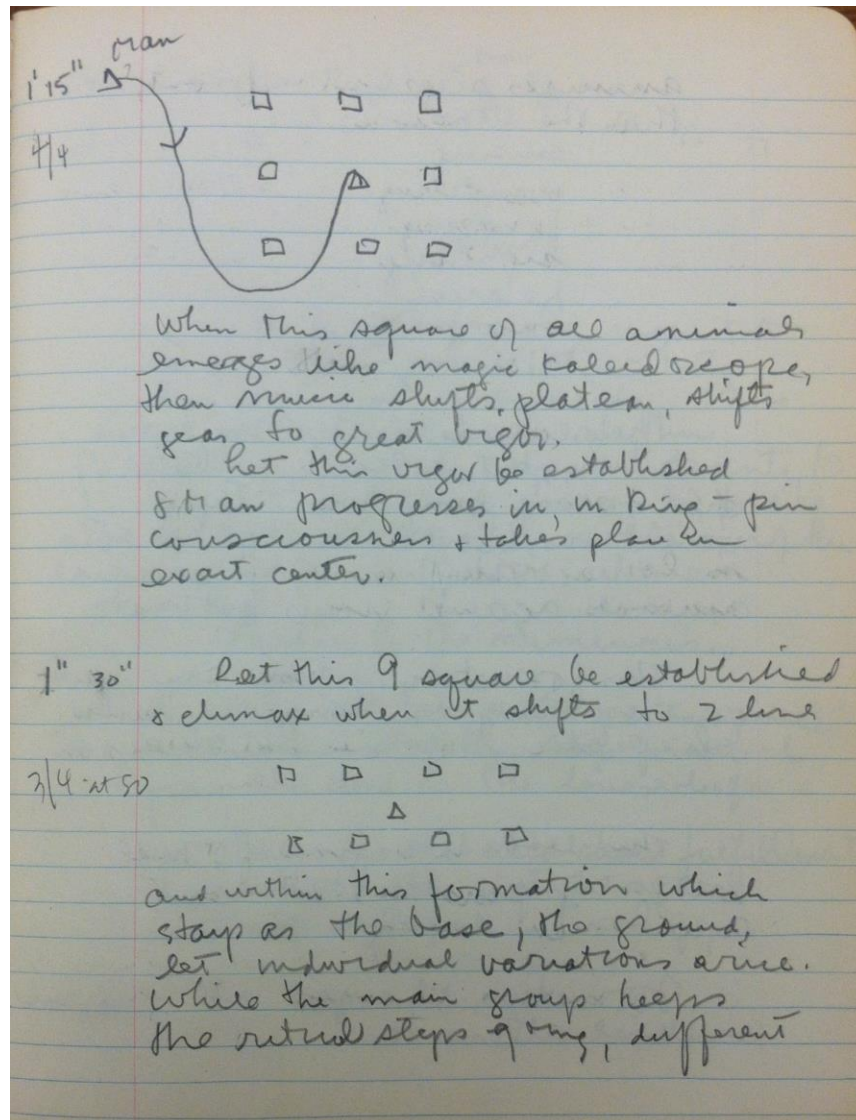 Man
1'15"
4/4
When this square of all animals
emerges like magic kaleidoscope,
then music shifts, plateau, shifts
gear to great vigor.
Let this vigor be established
& Man progresses in, in King-pin
consciousness & takes place in
exact center.
1" 30" Let this 9 square be established
& climax when it shifts to 2 line
3/4 at 50
and within this formation which
stays as the base, the ground,
let individual variations arise.
While the main group keeps
the ritual steps going, different